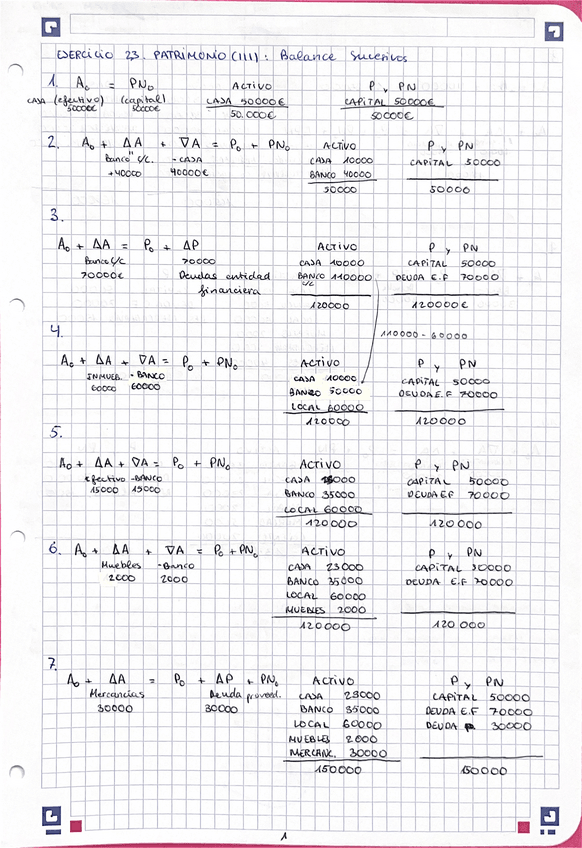 EJERCICIO 23. PATRIMONIO (III): Balance Sucesivos
1. A₀ = PN₀ ACTIVO P y PN
CAJA (efectivo) (capital) CAJA 50000€ CAPITAL 50000€
50000€ 50000€ 50.000€ 50000€
2. A₀ + ΔA + ∇A = P₀ + PN₀ ACTIVO P y PN
Banco c/c. - CAJA CAJA 10000 CAPITAL 50000
+40000 40000€ BANCO 40000
50000 50000
3.
A₀ + ΔA = P₀ + ΔP ACTIVO P y PN
Banco c/c 70000 CAJA 10000 CAPITAL 50000
70000€ Deudas entidad BANCO c/c 110000 DEUDA E.F 70000
financiera
120000 120000€
110000 - 60000
4.
A₀ + ΔA + ∇A = P₀ + PN₀ ACTIVO P y PN
INMUEB. - BANCO CAJA 10000 CAPITAL 50000
60000 60000 BANCO 50000 DEUDA E.F 70000
LOCAL 60000
120000 120000
5.
A₀ + ΔA + ∇A = P₀ + PN₀ ACTIVO P y PN
efectivo -BANCO CAJA CAPITAL 50000
15000 15000 BANCO 35000 DEUDA EF 70000
LOCAL 60000
120000 120000
6. A₀ + ΔA + ∇A = P₀ + PN₀ ACTIVO P y PN
Muebles -Banco CAJA 23000 CAPITAL 50000
2000 2000 BANCO 35000 DEUDA E.F 70000
LOCAL 60000
MUEBLES 2000
120000 120 000
7.
A₀ + ΔA = P₀ + ΔP + PN₀ ACTIVO P y PN
Mercancias Deuda proveed. CAJA 23000 CAPITAL 50000
30000 30000 BANCO 35000 DEUDA E.F 70000
LOCAL 60000 DEUDA P 30000
MUEBLES 2000
MERCANC. 30000
150000 150000
1